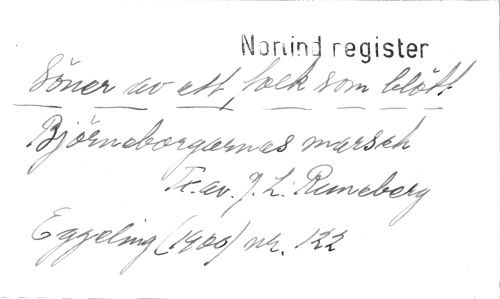 Norrind register
Söner av ett folk som blött
Björneborgarnas marsch
Tx. av. J. L. Runeberg
Eggeling (1900) nr. 122